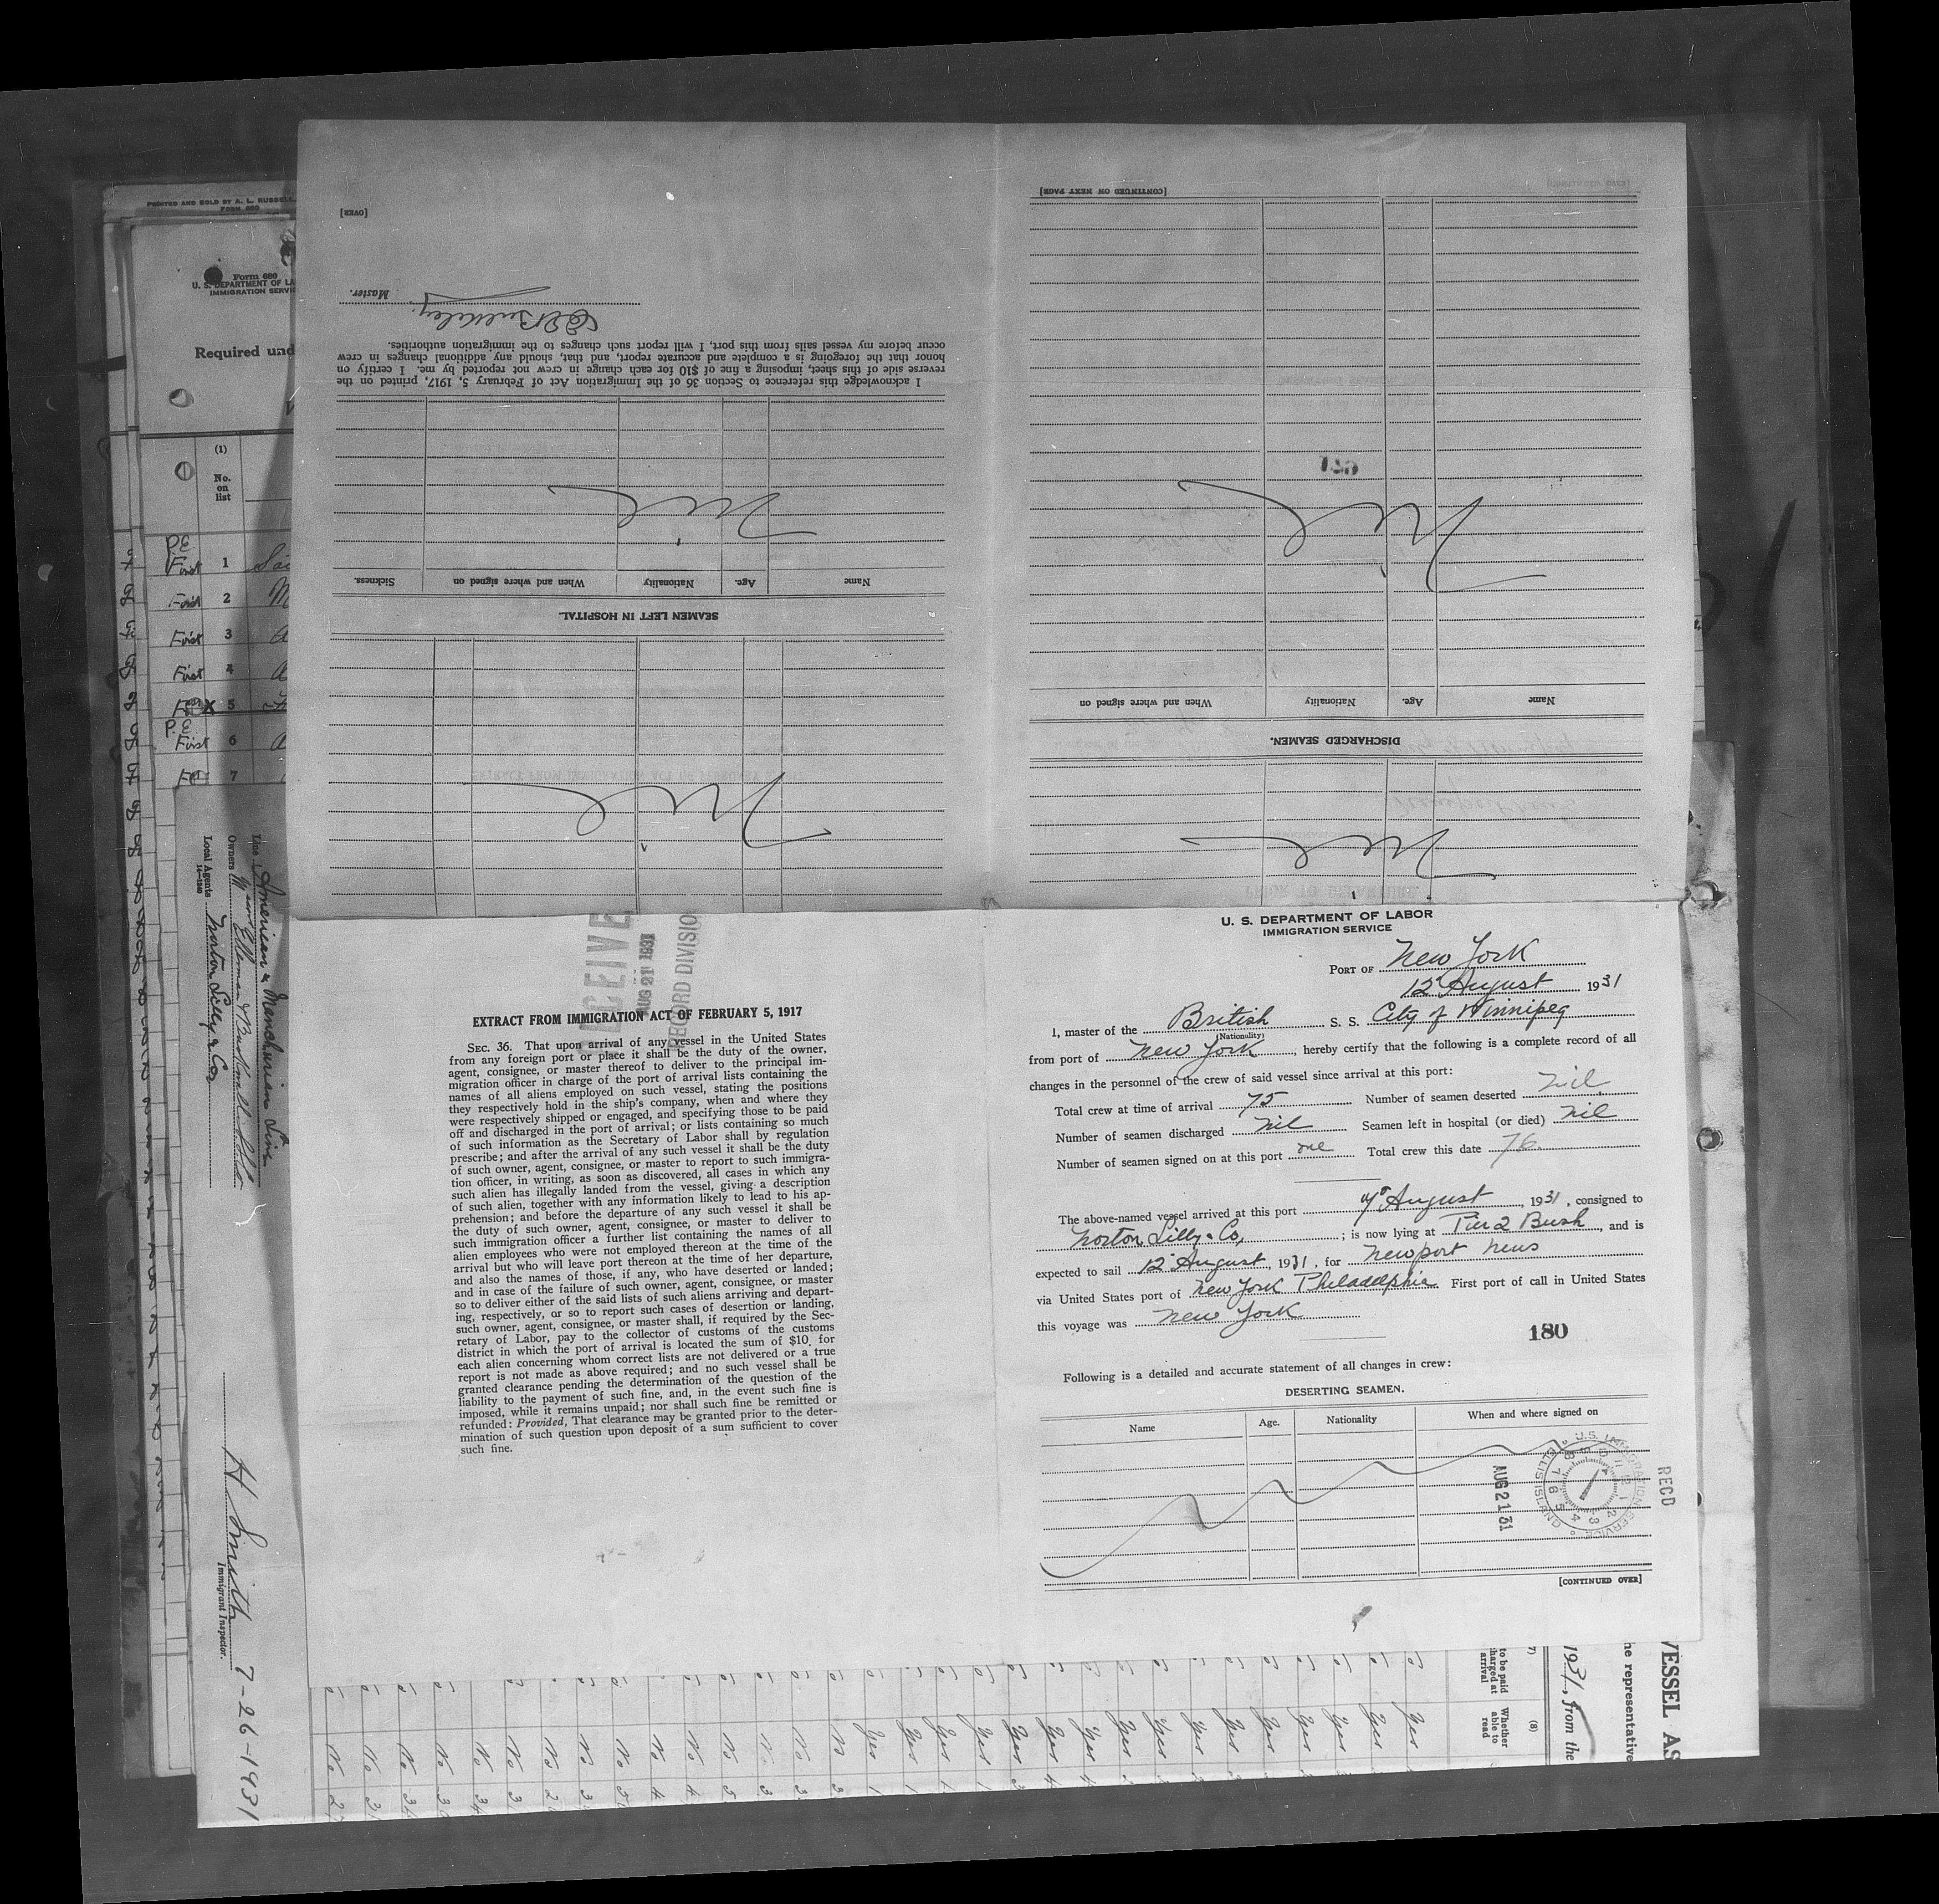 U. S. DEPARTMENT OF LABOR
IMMIGRATION SERVICE
PORT OF New York
12 August 1931
I, master of the British S. S. City of Winnipeg
(Nationality)
from port of New York, hereby certify that the following is a complete record of all
changes in the personnel of the crew of said vessel since arrival at this port:
Total crew at time of arrival 75 Number of seamen deserted nil
Number of seamen discharged nil Seamen left in hospital (or died) nil
Number of seamen signed on at this port one Total crew this date 76
The above-named vessel arrived at this port August, 1931, consigned to
Norton Lilly & Co, ; is now lying at Pier 2 Bush, and is
expected to sail 12 August, 1931, for Newport News
via United States port of New York Philadelphia. First port of call in United States
this voyage was New York
180
Following is a detailed and accurate statement of all changes in crew:
DESERTING SEAMEN.
Name Age. Nationality When and where signed on
AUG 21 31
U.S. IMMIGRATION SERVICE
ELLIS ISLAND
RECD
[CONTINUED OVER]
AUG 21 1931
RECORD DIVISIO
EXTRACT FROM IMMIGRATION ACT OF FEBRUARY 5, 1917
SEC. 36. That upon arrival of any vessel in the United States
from any foreign port or place it shall be the duty of the owner,
agent, consignee, or master thereof to deliver to the principal im-
migration officer in charge of the port of arrival lists containing the
names of all aliens employed on such vessel, stating the positions
they respectively hold in the ship's company, when and where they
were respectively shipped or engaged, and specifying those to be paid
off and discharged in the port of arrival; or lists containing so much
of such information as the Secretary of Labor shall by regulation
prescribe; and after the arrival of any such vessel it shall be the duty
of such owner, agent, consignee, or master to report to such immigra-
tion officer, in writing, as soon as discovered, all cases in which any
such alien has illegally landed from the vessel, giving a description
of such alien, together with any information likely to lead to his ap-
prehension; and before the departure of any such vessel it shall be
the duty of such owner, agent, consignee, or master to deliver to
such immigration officer a further list containing the names of all
alien employees who were not employed thereon at the time of the
arrival but who will leave port thereon at the time of her departure,
and also the names of those, if any, who have deserted or landed;
and in case of the failure of such owner, agent, consignee, or master
so to deliver either of the said lists of such aliens arriving and depart-
ing, respectively, or so to report such cases of desertion or landing,
such owner, agent, consignee, or master shall, if required by the Sec-
retary of Labor, pay to the collector of customs of the customs
district in which the port of arrival is located the sum of $10 for
each alien concerning whom correct lists are not delivered or a true
report is not made as above required; and no such vessel shall be
granted clearance pending the determination of the question of the
liability to the payment of such fine, and, in the event such fine is
imposed, while it remains unpaid; nor shall such fine be remitted or
refunded: Provided, That clearance may be granted prior to the deter-
mination of such question upon deposit of a sum sufficient to cover
such fine.
Nil
DISCHARGED SEAMEN.
Name Age. Nationality When and where signed on
Nil
[CONTINUED ON NEXT PAGE]
Nil
SEAMEN LEFT IN HOSPITAL.
Name Age. Nationality When and where signed on Sickness.
Nil
I acknowledge this reference to Section 36 of the Immigration Act of February 5, 1917, printed on the
reverse side of this sheet, imposing a fine of $10 for each change in crew not reported by me. I certify on
honor that the foregoing is a complete and accurate report, and that, should any additional changes in crew
occur before my vessel sails from this port, I will report such changes to the immigration authorities.
Master.
[OVER]
PRINTED AND SOLD BY A. L. RUSSELL,
FORM 680
Form 680
U. S. DEPARTMENT OF LA
IMMIGRATION SERVIC
Required und
(1)
No.
on
list
P.E.
First 1
First 2
First 3
First 4
X 5
P.E.
First 6
7
Line American & Manchurian Line
Owners
Local Agents Norton Lilly & Co
14—1240
H Smith 7-26-1931
Immigrant Inspector.
VESSEL AS
he representative
1931, from the
(8)
Whether
able to
read
7)
to be paid
harged at
arrival